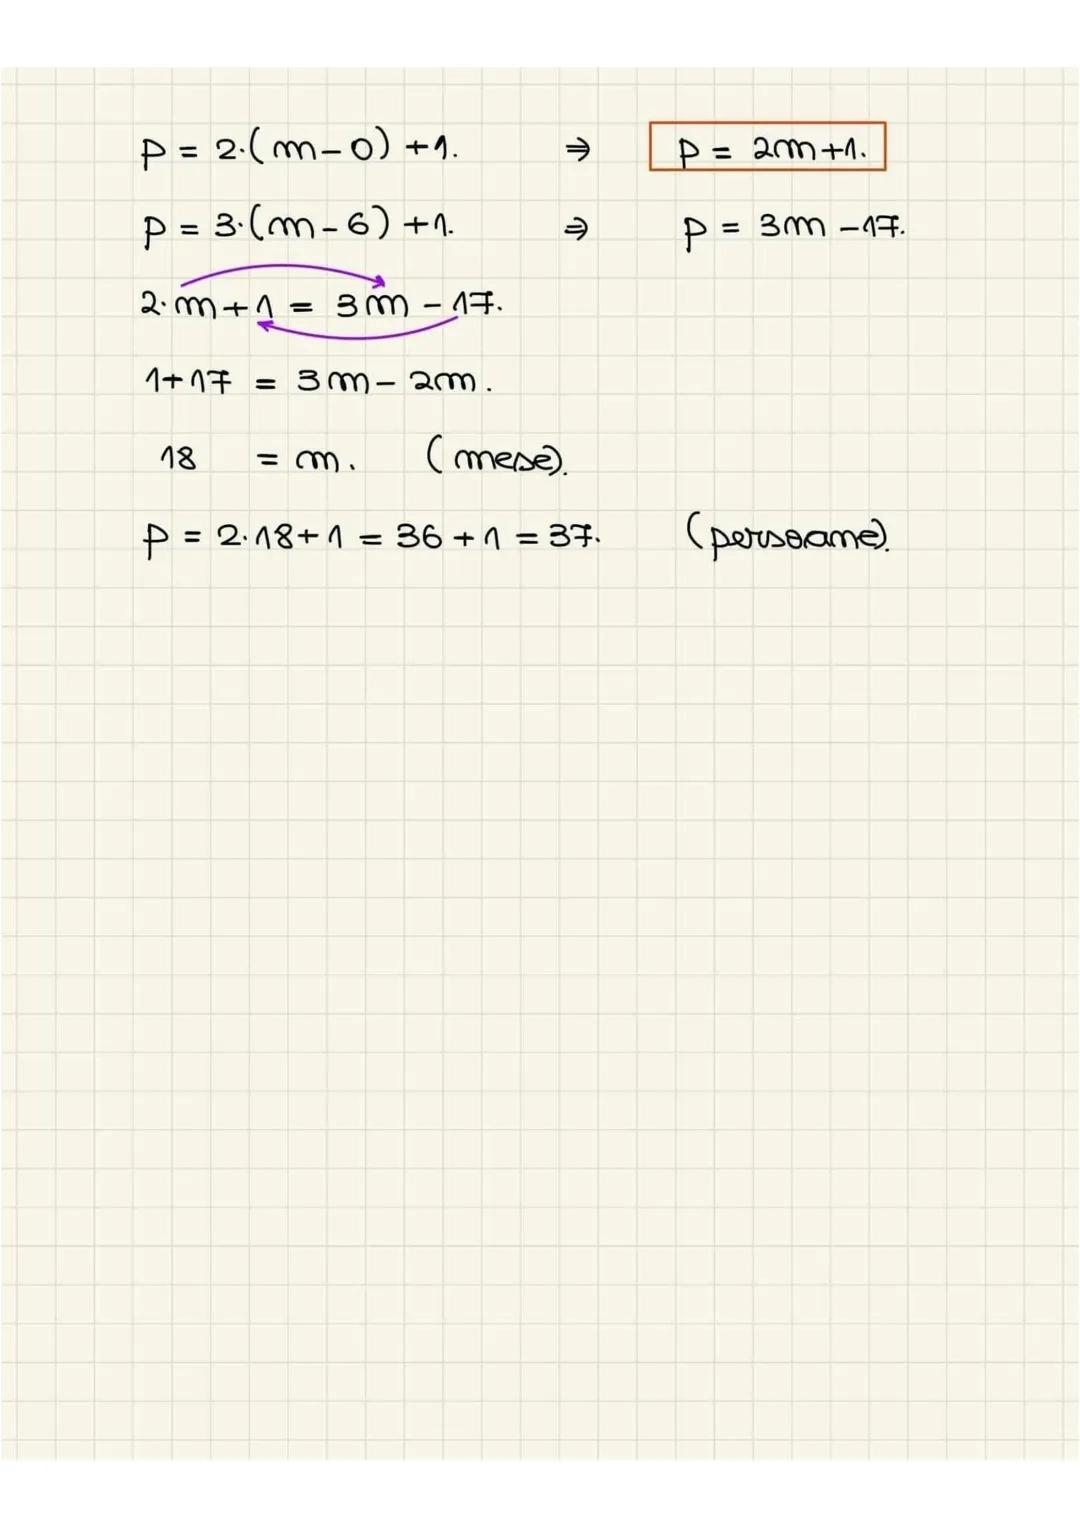 p = 2·(m-0) +1. ⇒ p = 2m+1.
p = 3·(m-6) +1. ⇒ p = 3m -17.
2·m+1 = 3m - 17.
1+17 = 3m - 2m.
18 = m. (mese).
p = 2·18+1 = 36 +1 = 37. (persoane).